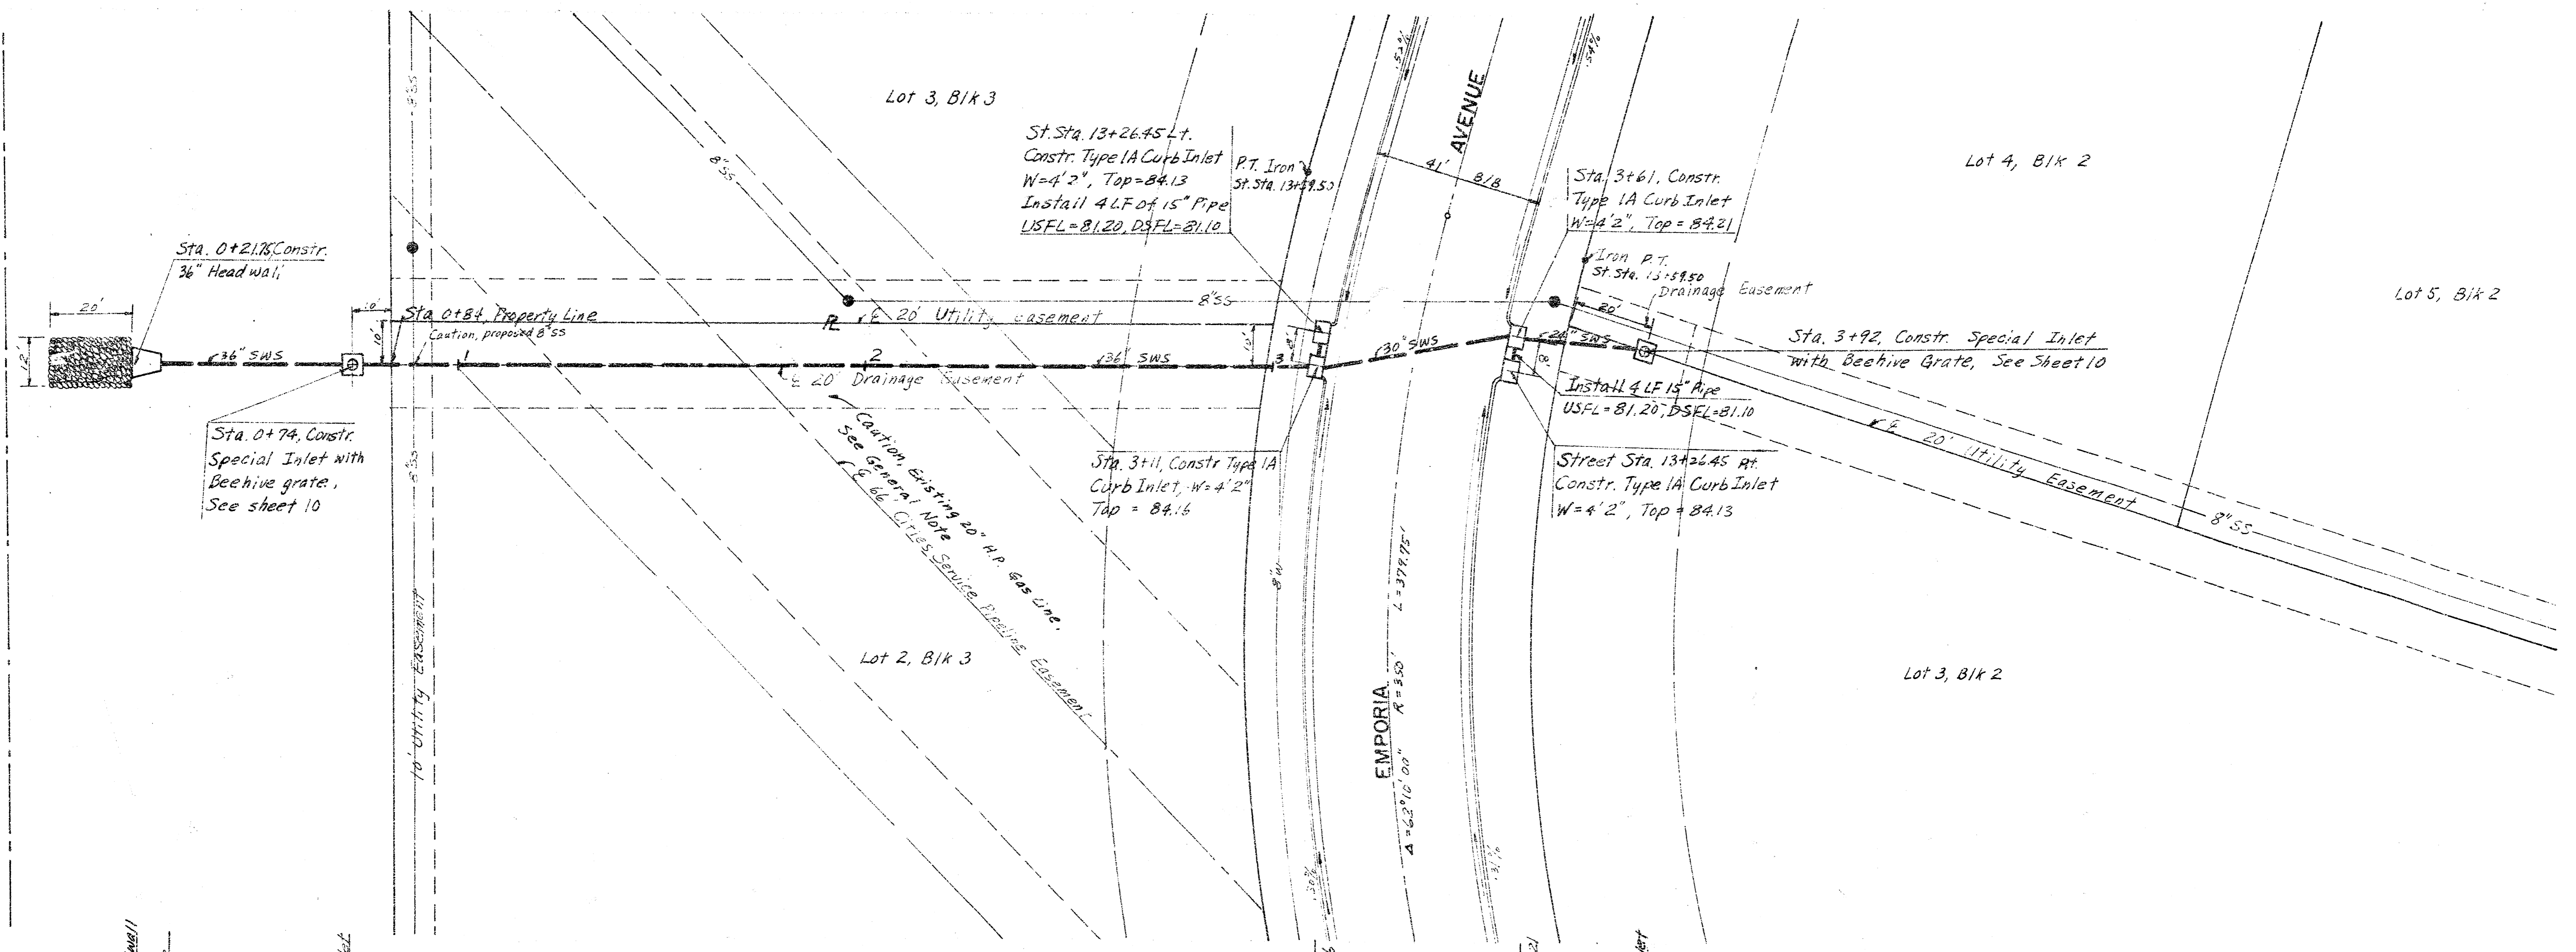 Lot 3, Blk 3
St. Sta. 13+26.45 Lt.
Constr. Type 1A Curb Inlet
W=4'2", Top=84.13
Install 4 LF of 15" Pipe
USFL=81.20, DSFL=81.10
P.T. Iron
St. Sta. 13+59.50
.52%
.54%
AVENUE
41' B/B
Sta. 3+61, Constr.
Type 1A Curb Inlet
W=4'2", Top = 84.21
Lot 4, Blk 2
Lot 5, Blk 2
Iron P.T.
St. Sta. 13+59.50
Drainage Easement
20'
Sta. 0+21.75, Constr.
36" Headwall
20'
12'
36" SWS
10'
10'
8"SS
8"SS
Sta. 0+84, Property Line
Caution, proposed 8"SS
1
2
3
8"SS
℄ 20' Utility Easement
36" SWS
℄ 20' Drainage Easement
10'
8'
30" SWS
24" SWS
8'
Sta. 3+92, Constr. Special Inlet
with Beehive Grate, See Sheet 10
Install 4 LF 15" Pipe
USFL=81.20, DSFL=81.10
Sta. 0+74, Constr.
Special Inlet with
Beehive grate,
See sheet 10
8"SS
10' Utility Easement
Caution, Existing 20" H.P. Gas Line.
See General Note
℄ 66' Cities Service Pipeline Easement
Sta. 3+11, Constr Type 1A
Curb Inlet, W=4'2"
Top = 84.16
Street Sta. 13+26.45 Rt.
Constr. Type 1A Curb Inlet
W=4'2", Top = 84.13
℄ 20' Utility Easement
8"SS
8"W
Lot 2, Blk 3
EMPORIA
Δ=62°10'00" R=350' L=379.75'
Lot 3, Blk 2
.30%
.31%
wall
let
21
let